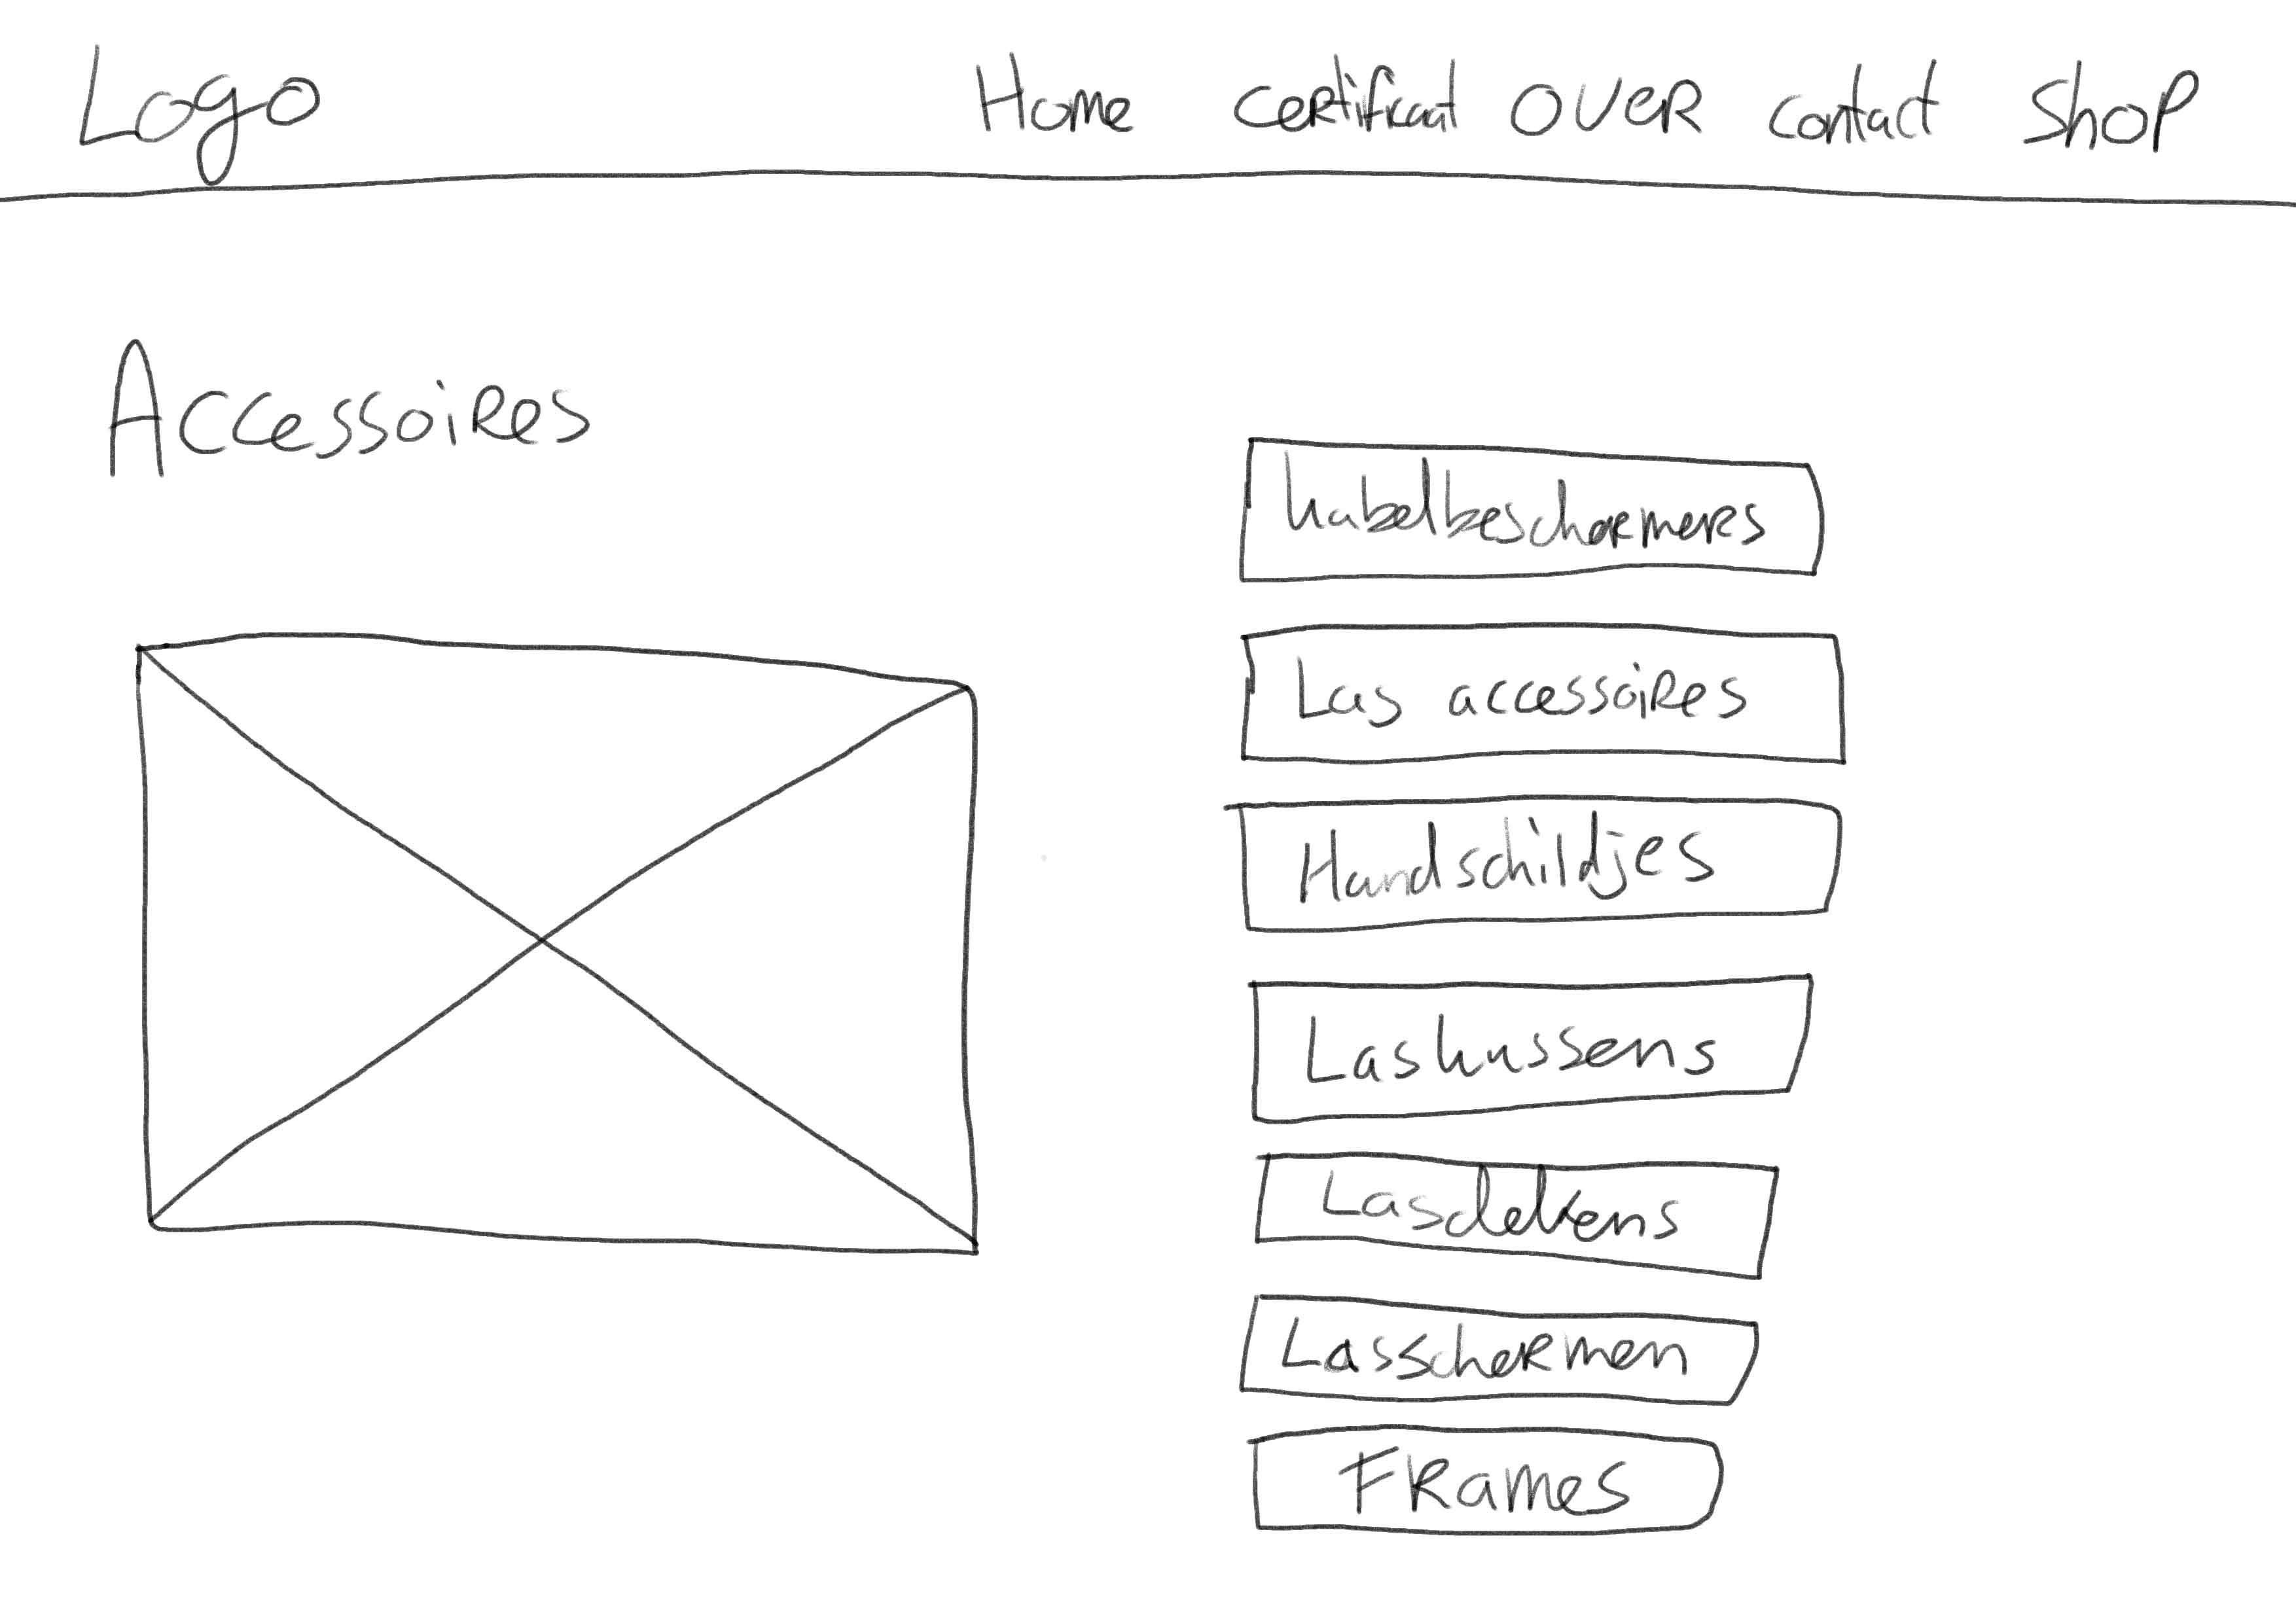 Logo
Home Certificaat OVER Contact Shop
Accessoires
kabelbeschermers
Las accessoires
Handschildjes
Laskussens
Lasdekens
Lasschermen
FRames